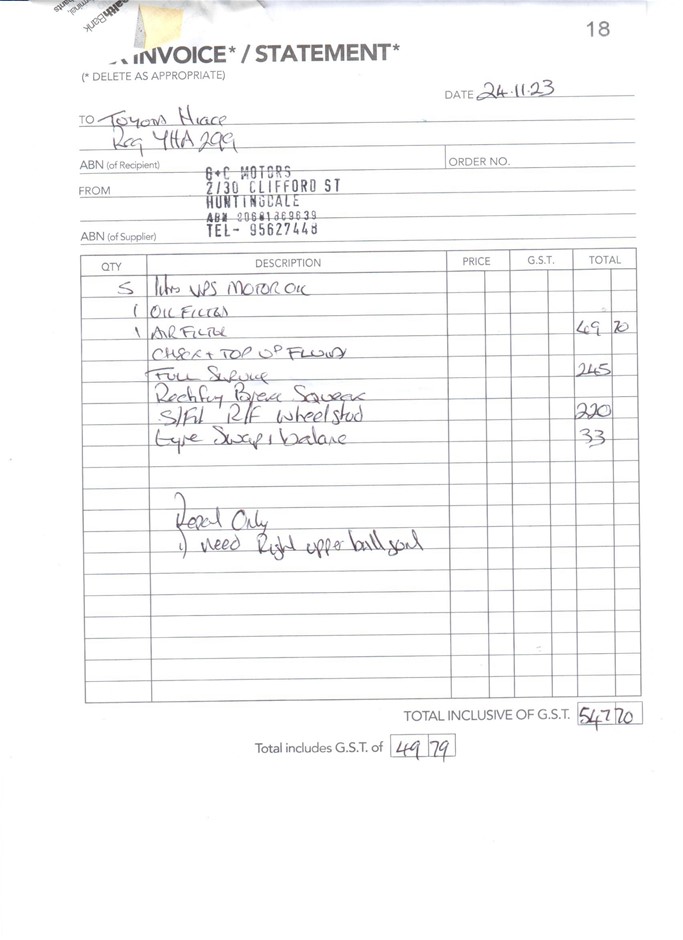 18
INVOICE* / STATEMENT*
(* DELETE AS APPROPRIATE)
DATE 24.11.23
TO Toyota Hiace
Reg YHA 299
ABN (of Recipient)
ORDER NO.
FROM
G+C MOTORS
2/30 CLIFFORD ST
HUNTINGDALE
ABN
TEL- 95627448
ABN (of Supplier)
QTY DESCRIPTION PRICE G.S.T. TOTAL
5 litres VPS MOTOR OIL
1 OIL FILTER
1 AIR FILTER 49 70
CHECK + TOP UP FLUIDS
Full Service 245
Rectify Squeak
S/Fit R/F wheel stud 220
tyre Swap, balance 33
Only
1) need Right upper ball joint
TOTAL INCLUSIVE OF G.S.T. 547 70
Total includes G.S.T. of 49 79